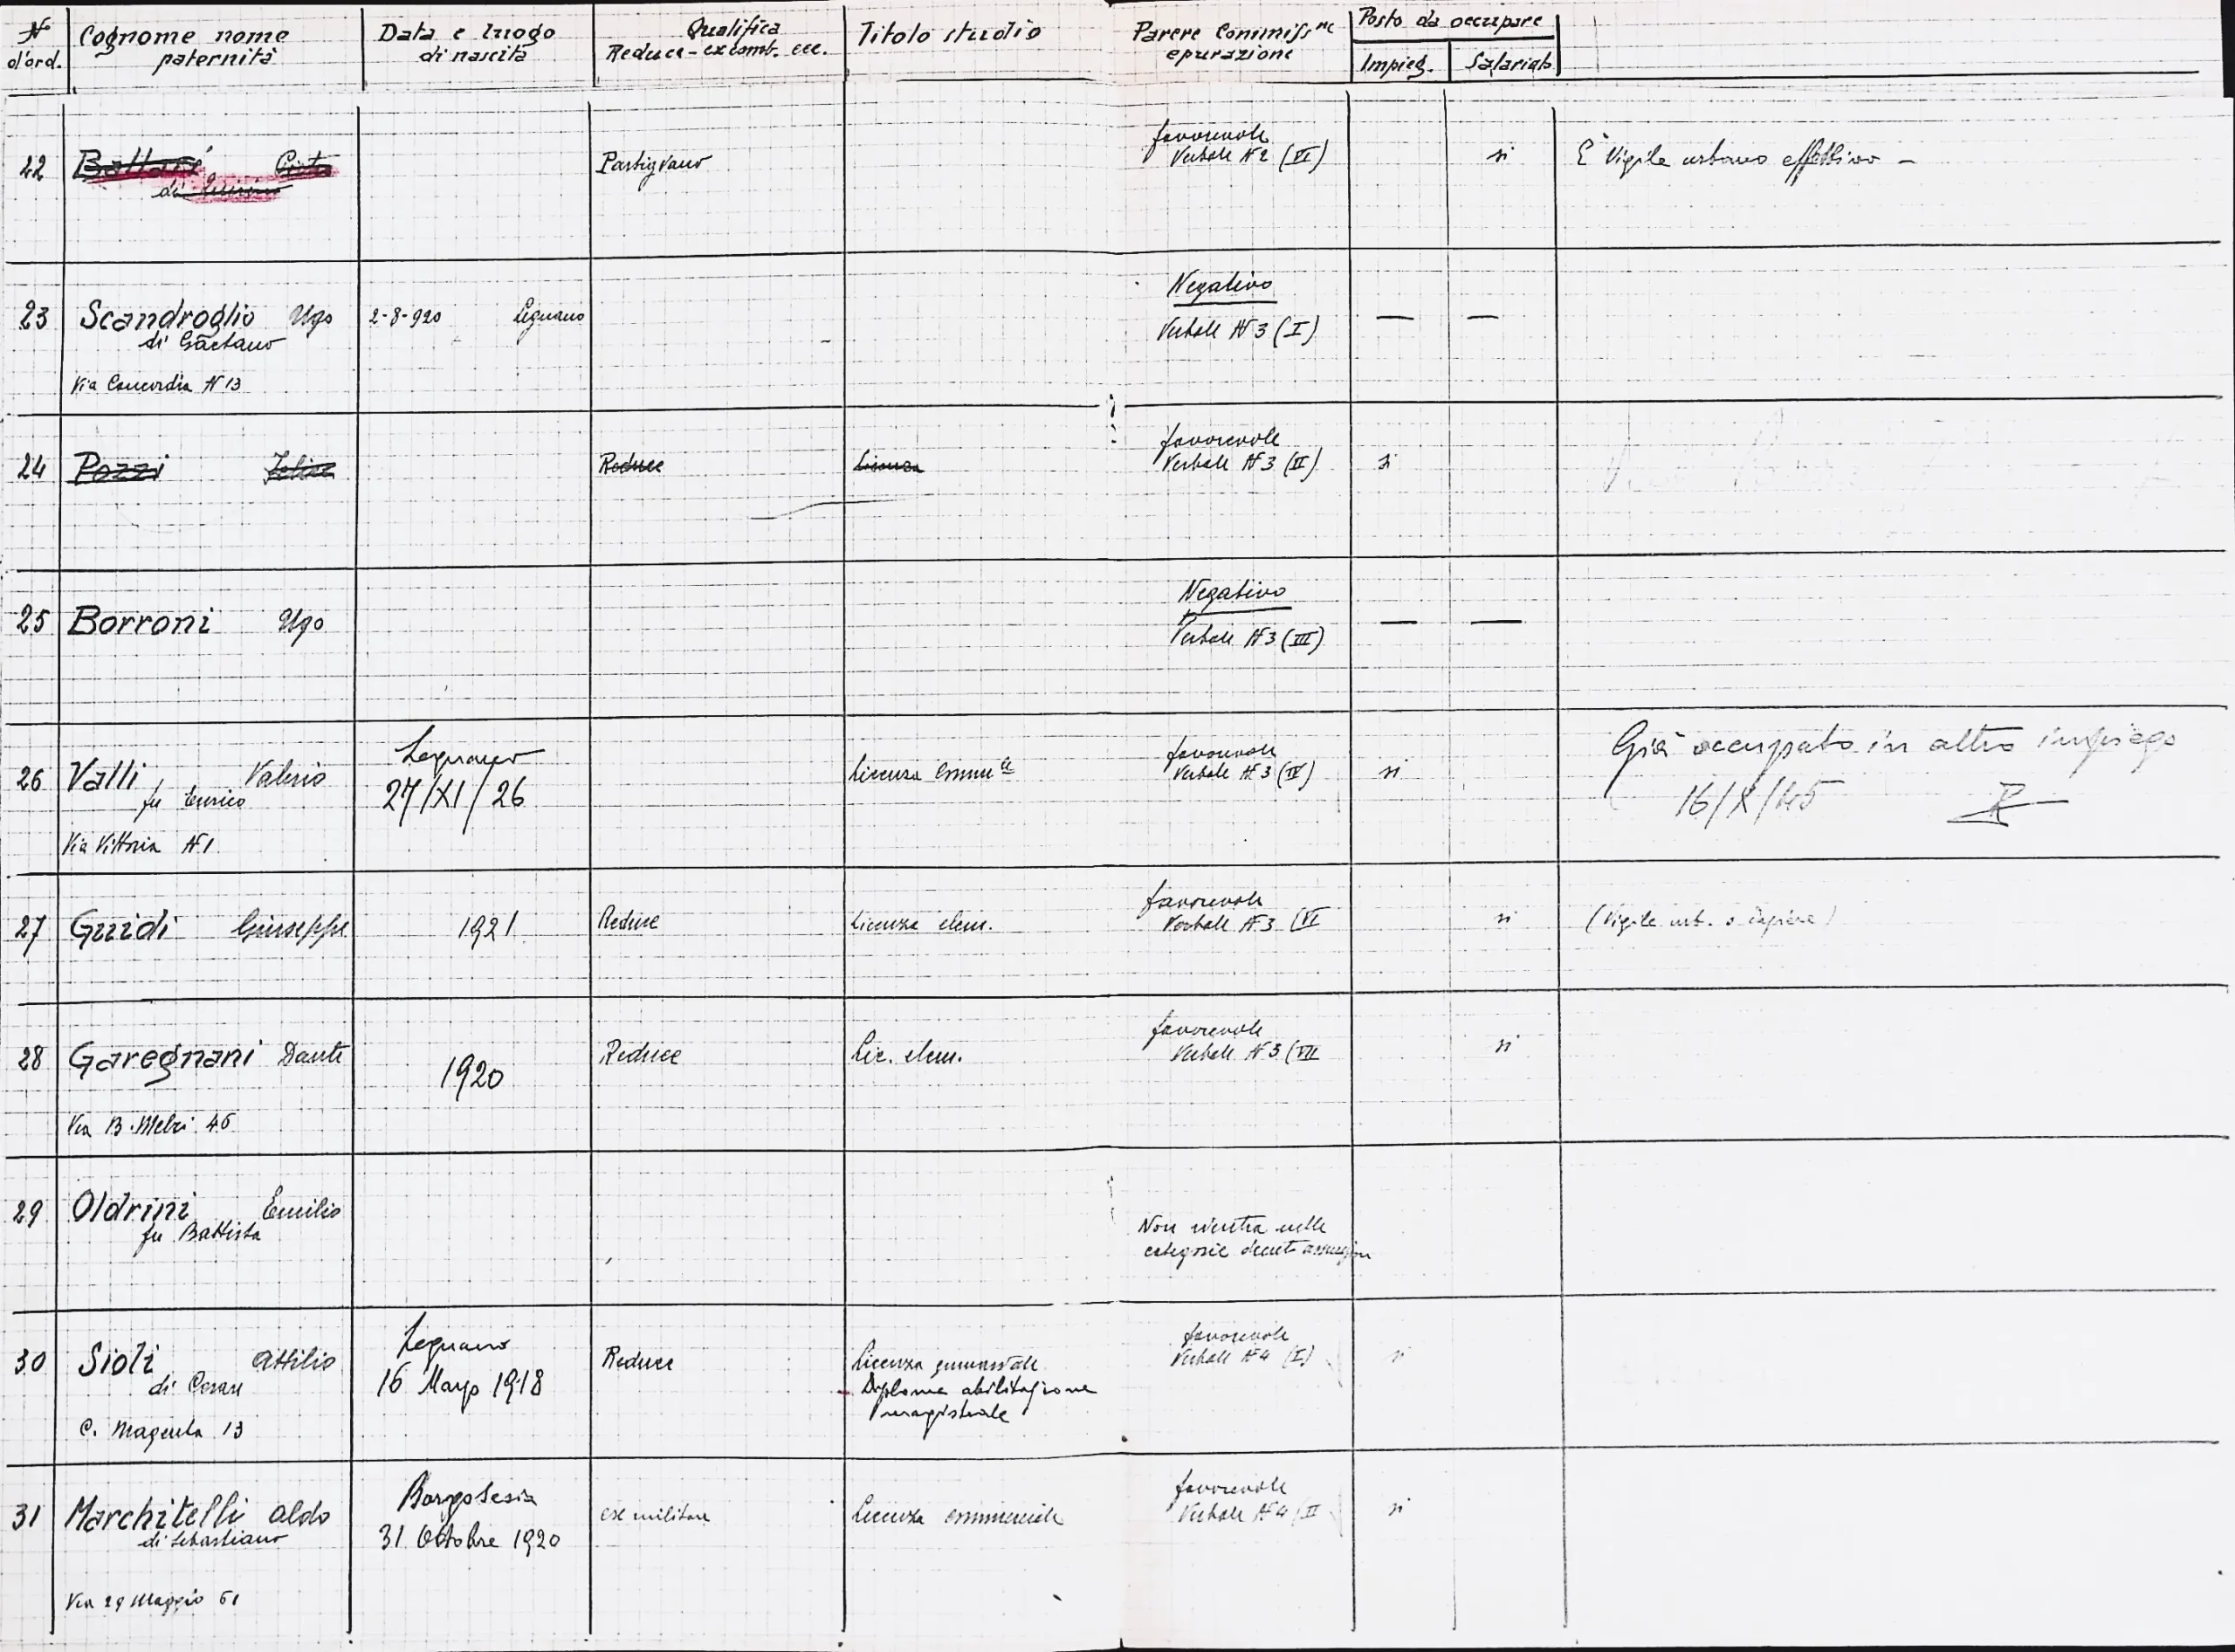 N° d'ord. Cognome nome paternità Data e luogo di nascita Qualifica Reduce - ex comb. ecc. Titolo studio Parere Commiss.ne epurazione Posto da occupare Impieg. Salariato
22 Partigiano favorevole si È Vigile urbano effettivo -
di Verbale N°2 (VI)
Negativo
23 Scandroglio Ugo 2-8-920 Legnano Verbale N°3 (I) — —
di Gaetano
Via Concordia N°13
favorevole
24 Pozzi Felice Reduce Licenza Verbale N°3 (II) si
Negativo
25 Borroni Ugo Verbale N°3 (III) — —
Legnano favorevole Già occupato in altro impiego
26 Valli Valerio 27/XI/26 Licenza Comm.le Verbale N°3 (IV) si 16/X/45
fu Enrico
Via Vittoria N°1
favorevole
27 Guidi Giuseppe 1921 Reduce Licenza elem. Verbale N°3 (VI si (Vigile urb. o
favorevole
28 Garegnani Dante 1920 Reduce Lic. elem. Verbale N°3 (VII si
Via B. Melzi 46
29 Oldrini Emilio
fu Battista Non rientra nelle
categorie decreto assunzion
Legnano favorevole
30 Sioli Attilio 16 Marzo 1918 Reduce Licenza ginnasiale Verbale N°4 (I) si
di Cesare Diploma abilitazione
magistrale
C. Magenta 13
Borgosesia favorevole
31 Marchitelli Aldo 31 Ottobre 1920 ex militare Licenza commerciale Verbale N°4 (II si
di Sebastiano
Via 29 Maggio 61